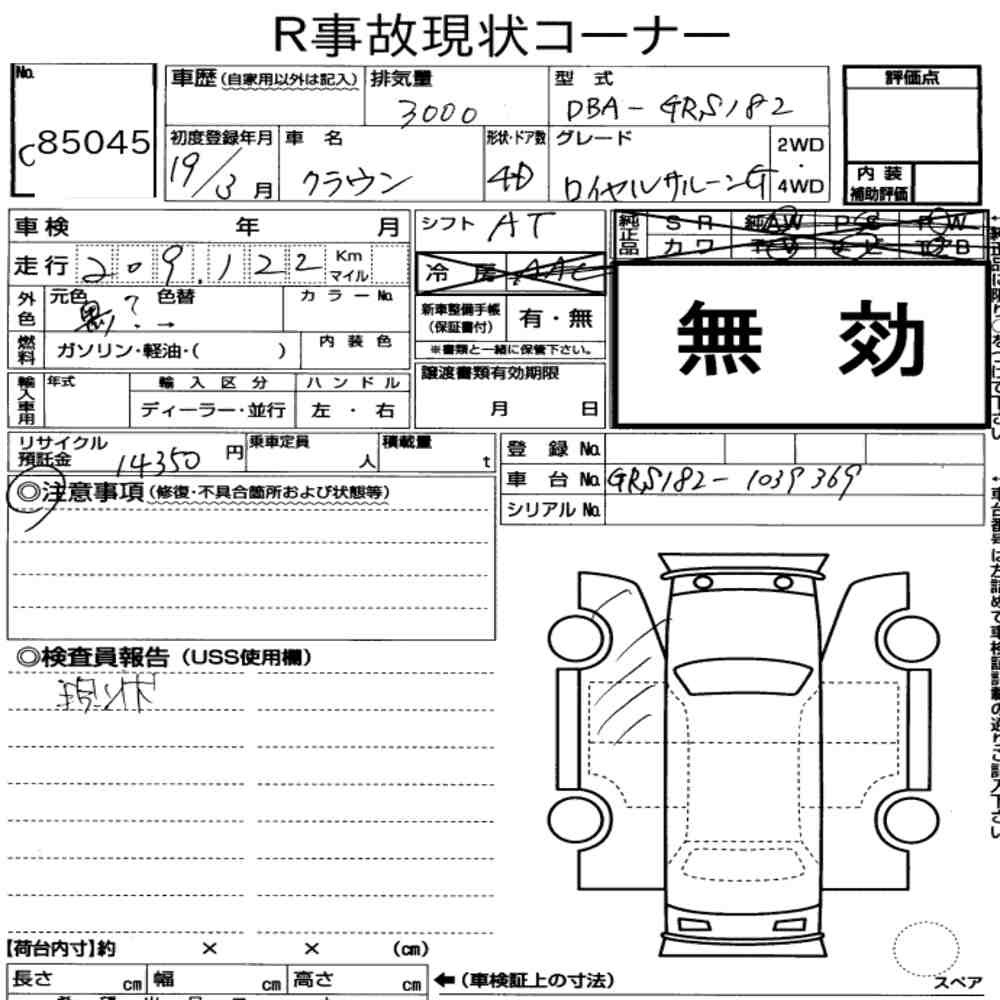 R事故現状コーナー
No. C85045
車歴(自家用以外は記入)
排気量 3000
型式 DBA-GRS182
評価点
初度登録年月 19/3月
車名 クラウン
形状・ドア数 4D
グレード ロイヤルサルーンG
2WD
・
4WD
内装
補助評価
車検 年 月
シフト AT
純正品 SR 純AW PS PW
カワ ナビ TV
走行 209,122 Km
マイル
冷房 AAC
外色 元色 黒? → 色替
カラーNo.
新車整備手帳
(保証書付)
有・無
※書類と一緒に保管下さい。
無効
燃料 ガソリン・軽油・( )
内装色
譲渡書類有効期限
月 日
輸入車用 年式
輸入区分
ディーラー・並行
ハンドル
左・右
リサイクル
預託金 14350円
乗車定員 人
積載量 t
登録No.
車台No. GRS182-1039369
シリアルNo.
◎注意事項(修復・不具合箇所および状態等)
◎検査員報告(USS使用欄)
現状
←車台番号は左詰めで車検証記載の通りご記入下さい
【荷台内寸】約 × × (cm)
長さ cm 幅 cm 高さ cm
←(車検証上の寸法)
スペア